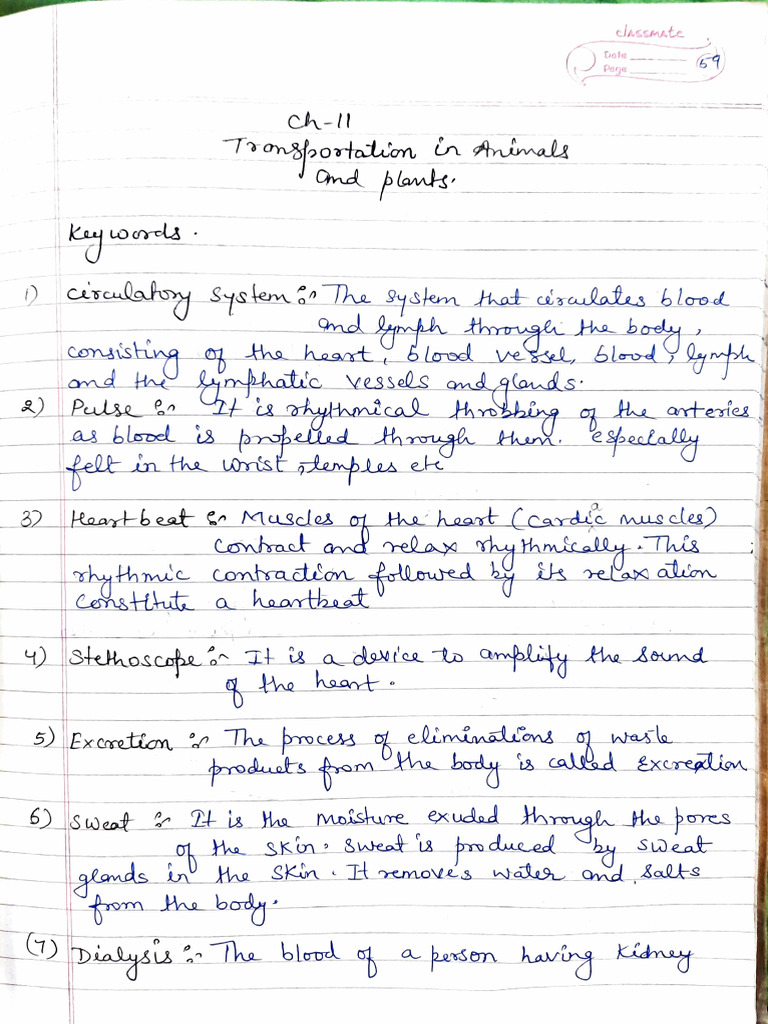 classmate
Date
Page 59
Ch-11
Transportation in Animals
and plants.
Keywords.
1) Circulatory system :- The system that circulates blood
and lymph through the body,
consisting of the heart, blood vessel, blood, lymph
and the lymphatic vessels and glands.
2) Pulse :- It is rhythmical throbbing of the arteries
as blood is propelled through them. especially
felt in the wrist, temples etc
3) Heartbeat :- Muscles of the heart (Cardiac muscles)
contract and relax rhythmically. This
rhythmic contraction followed by its relaxation
constitute a heartbeat
4) Stethoscope :- It is a device to amplify the sound
of the heart.
5) Excretion :- The process of eliminations of waste
products from the body is called Excreation
6) Sweat :- It is the moisture exuded through the pores
of the skin. Sweat is produced by sweat
glands in the skin. It removes water and salts
from the body.
(7) Dialysis :- The blood of a person having kidney